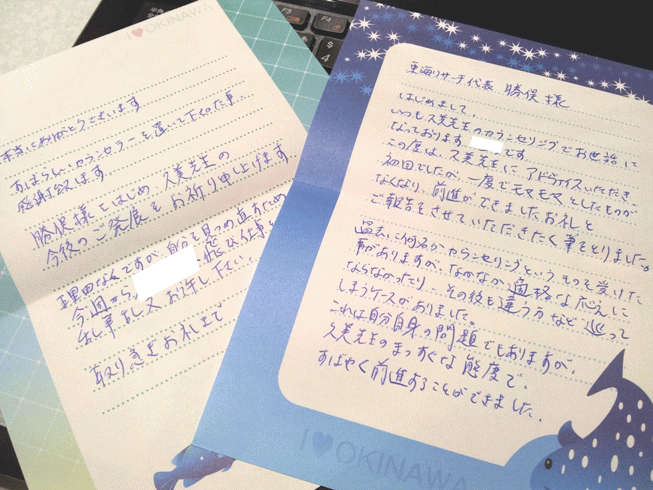 東海リサーチ代表 勝俣様
はじめまして。
いつも久美先生のカウンセリングでお世話に
なっております です。
この度は、久美先生に アドバイスいただき、
初回でしたが、一度でモヤモヤとしたものが
なくなり、前進ができました。お礼と
ご報告をさせていただきたく 筆をとりました。
過去に何名かカウンセリングというものを受けた
事がありますが、なかなか適格なように
ならなかったり、その後も違う方など 巡って
しまうケースがありました。
これは自分自身の問題でもありますが、
久美先生のまっすぐな態度で、
すばやく前進することができました。
I♥OKINAWA
I♥OKINAWA
本当にありがとうございます
すばらしいカウンセラーを選いて下さった事、
感謝致します
勝俣様をはじめ、久美先生の
今後のご発展をお祈り申し上げます。
理由なんですが、自分を見つめ直すため
今週から、 飛び仕事
乱筆乱文 お許し下さい。
取り急ぎお礼まで